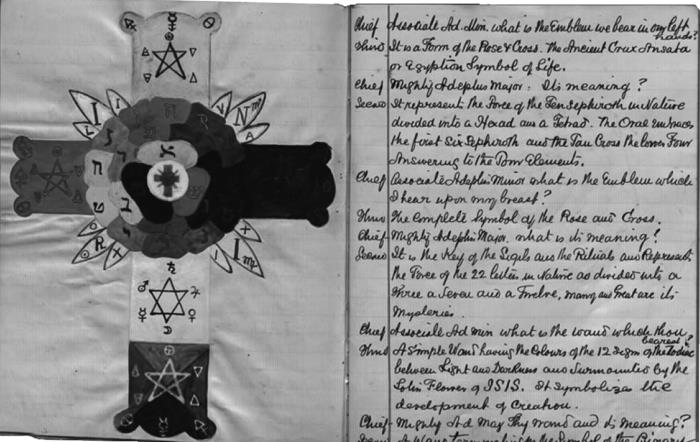 Chief Associate Ad. Min. what is the Emblem we bear in our left hands?
Third It is a Form of the Rose & Cross. The Ancient Crux Ansata
or Egyptian Symbol of Life.
Chief Mighty Adeptus Major: Its meaning?
Second It represents the Force of the Ten Sephiroth in Nature
divided into a Hexad and a Tetrad. The Oval embraces
the first Six Sephiroth and the Tau Cross the lower Four
Answering to the Elements.
Chief Associate Adeptus Minor what is the Emblem which
I bear upon my breast?
Third The Complete Symbol of the Rose and Cross.
Chief Mighty Adeptus Major. what is its meaning?
Second It is the Key of the Sigils and the Rituals and Represents
the Force of the 22 letters in Nature as divided into a
Three a Seven and a Twelve, many and Great are its
Mysteries.
Chief Associate Ad Min what is the wand which thou bearest?
Third A Simple Wand having the Colours of the 12 Signs of the Zodiac
between Light and Darkness and Surmounted by the
Lotus Flower of ISIS. It symbolizes the
development of Creation.
Chief Mighty Ad Maj Thy wand and its Meaning?
Second A Wand
I
I
L
V
V
N
R
A
I
R
X
X
I
I
ק
ר
ח
ט